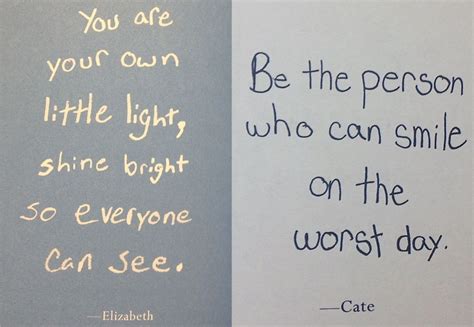 You are
your own
little light,
shine bright
so everyone
can see.
—Elizabeth
Be the person
who can smile
on the
worst day.
—Cate